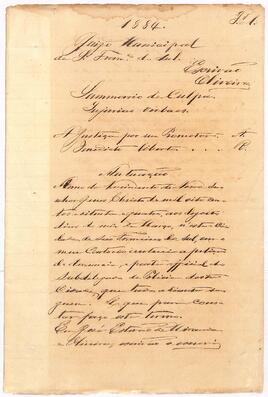 1884.
Fl 1.
Juizo Municipal
de S. Franco. do Sul.
Escrivão
Oliveira
Summario de Culpa
Injurias verbaes
A Justiça por seu Promotor A.
Benedicto liberto R.
Autuação
Anno do Nascimento de Nosso Se-
nhor Jesus Christo de mil oito cen-
tos oitenta e quatro, aos
dias do mez de Março, n'esta Ci-
dade de São Francisco do Sul, em o
meu Cartorio a petição
de denuncia, e parte official do
Subdelegado de Policia desta
Cidade, que tudo adiante se
segue. E que para cons-
tar faço este termo.
Eu José Estevão de Miranda
e Oliveira, escrivão o escrevi.